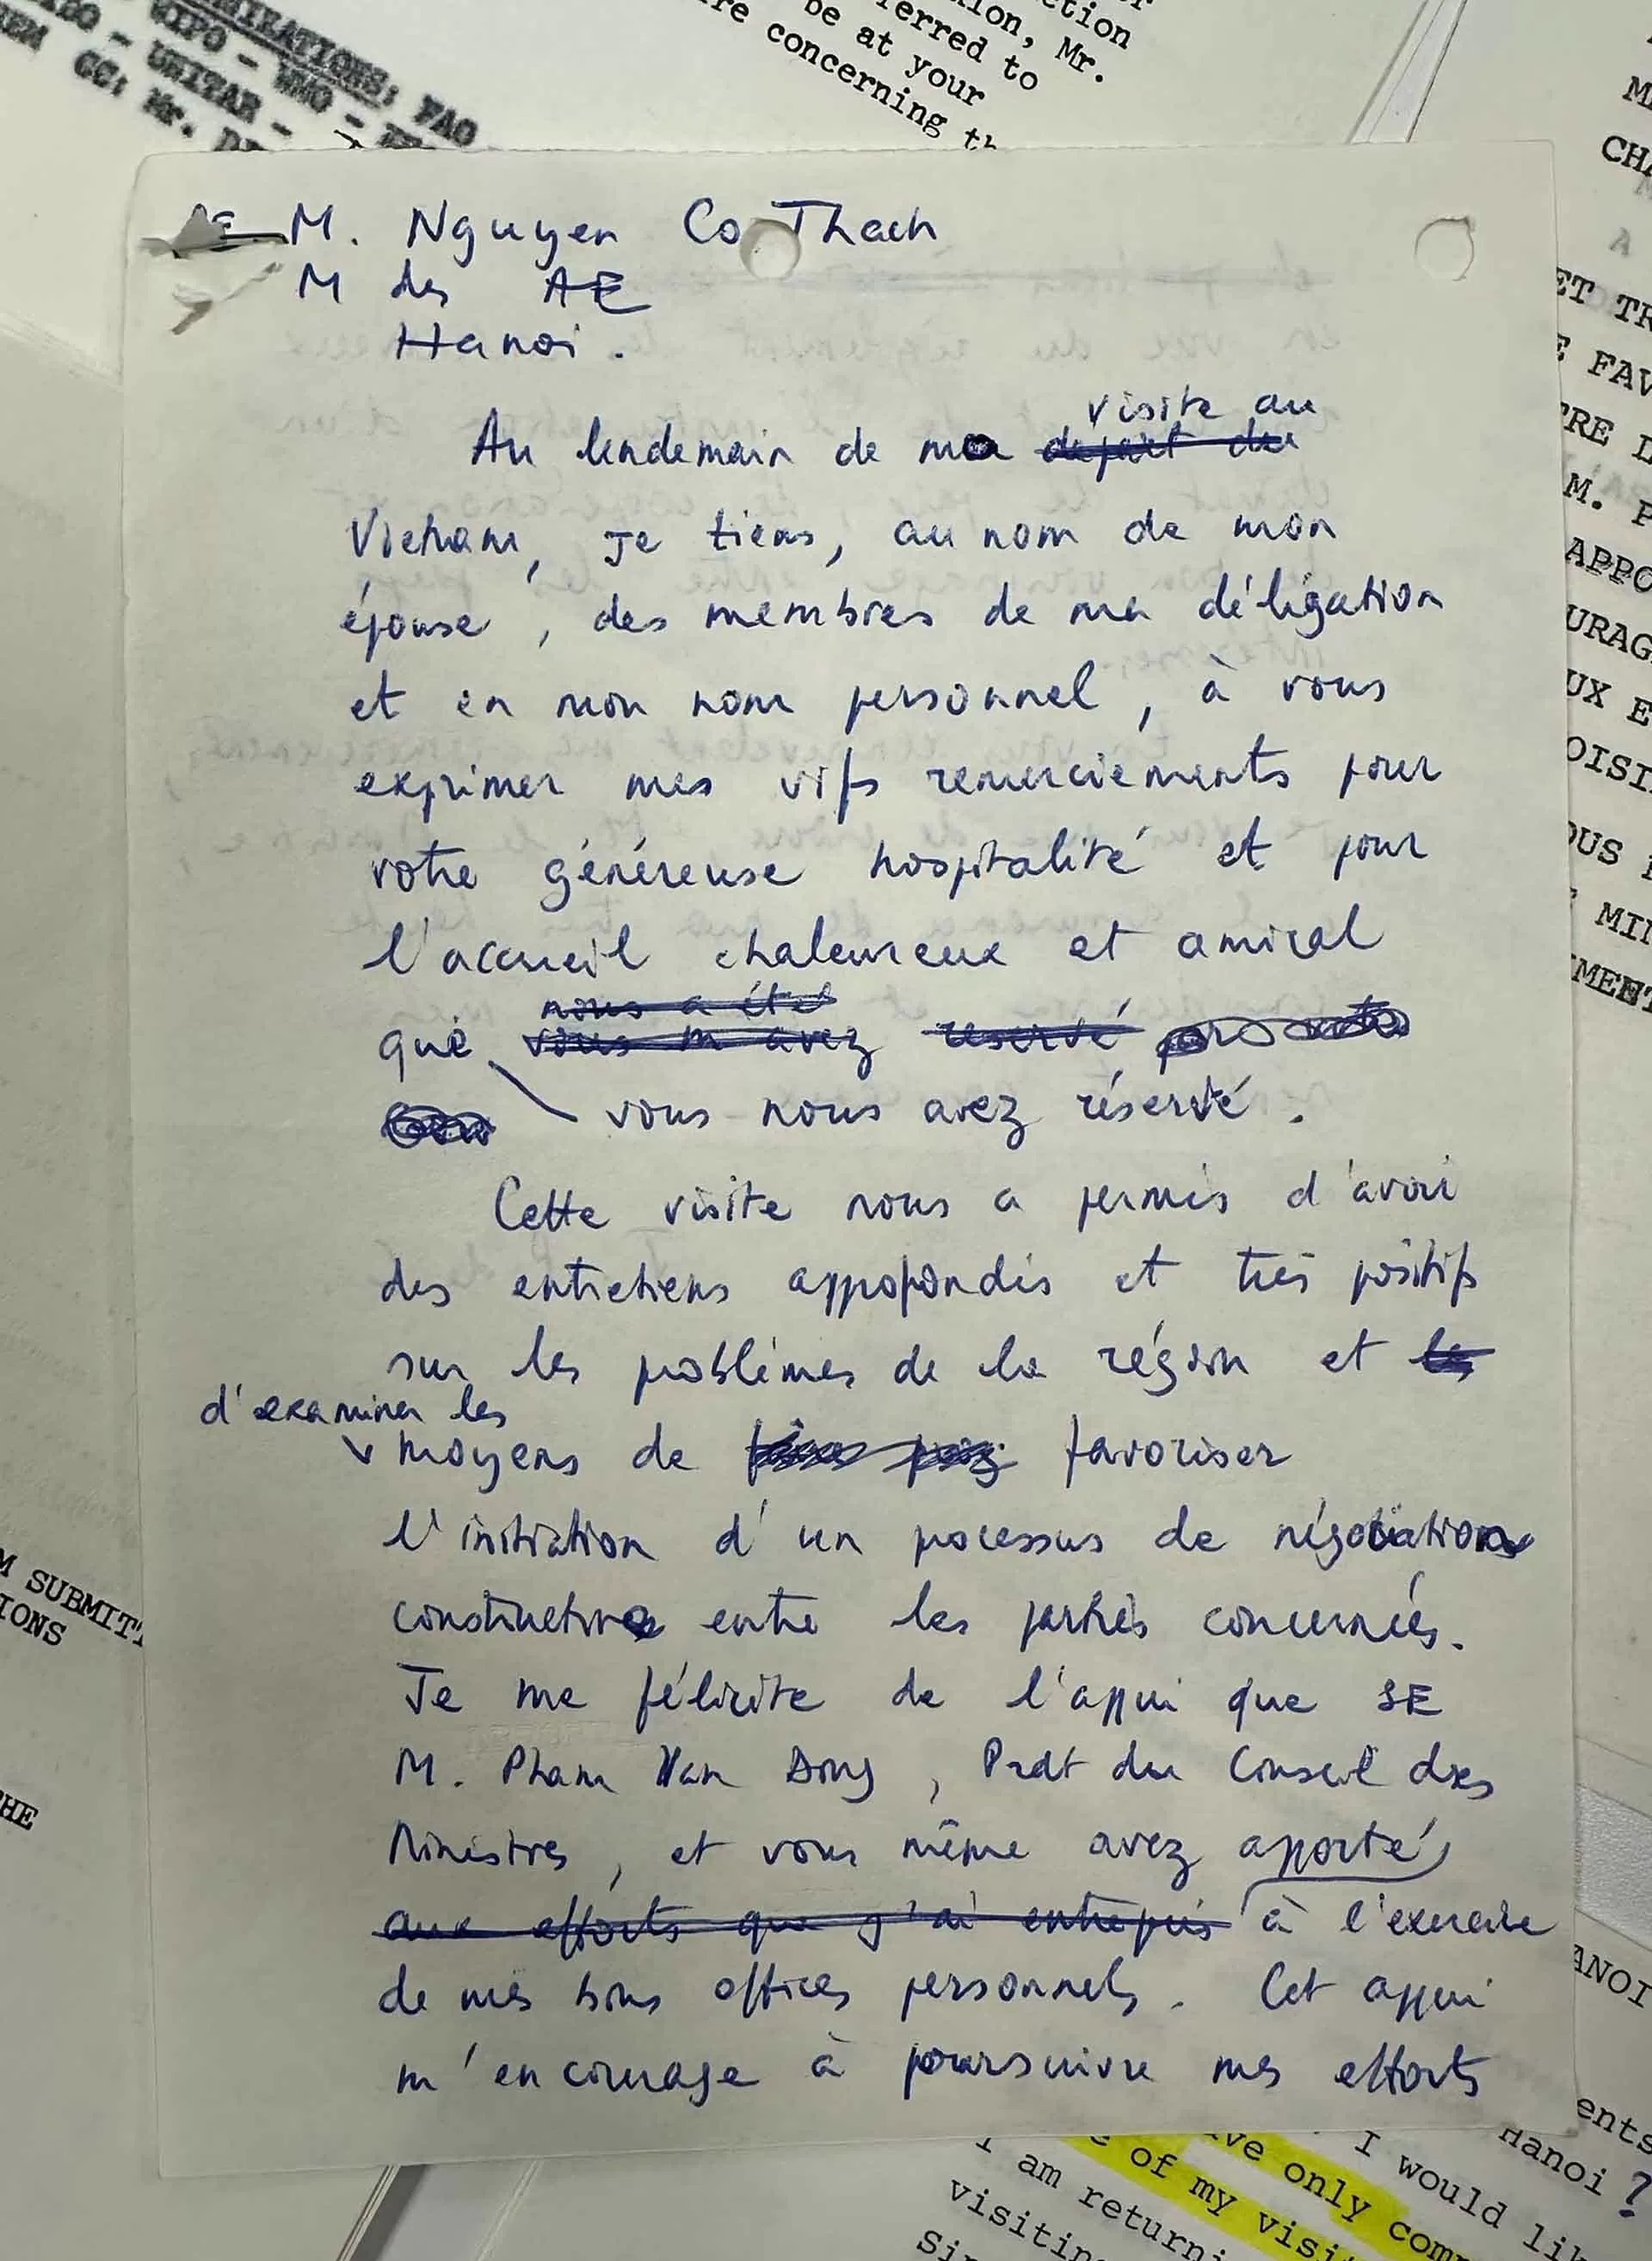 FAO
CC: Mr.
ction
ion, Mr.
erred to
be at your
re concerning th
SE M. Nguyen Co Thach
M des AE
Hanoi.
visite au
Au lendemain de ma depart du
Vietnam, je tiens, au nom de mon
épouse, des membres de ma délégation
et en mon nom personnel, à vous
exprimer mes vifs remerciements pour
votre généreuse hospitalité et pour
l'accueil chaleureux et amical
nous a été
que vous m'avez reservé
vous nous avez réservé.
Cette visite nous a permis d'avoir
des entretiens appofondis et très positifs
sur les problèmes de la région et les
d'examiner les
moyens de favoriser
l'initiation d'un processus de négociations
constructives entre les parties concernées.
Je me félicite de l'appui que SE
M. Pham Van Dong, Pzdt du Conseil des
Ministres, et vous même avez apporté
aux efforts que j'ai entrepris à l'exercice
de mes bons offices personnels. Cet appui
m'encourage à poursuivre mes efforts
CHA
ET TR
E FAV
TRE L
M. P
APPO
URAG
UX E
OISI
OUS
MIN
MENT
M SUBMIT
IONS
HE
ANOI
ents
Hanoi?
I would lik
ve only com
of my visi
I am returni
visiting
Sir